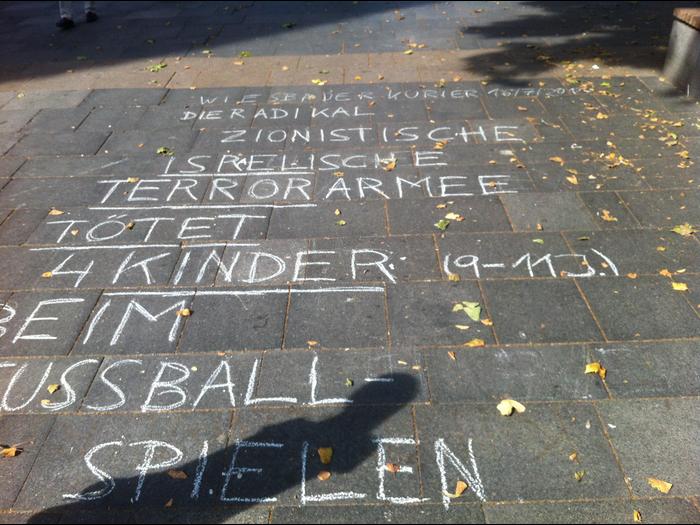 WIESBADER KURIER 16/7/201
DIE RADIKAL
ZIONISTISCHE
ISRELISCHE
TERROR ARMEE
TÖTET
4 KINDER (9-11J.)
BEIM
FUSSBALL-
SPIELEN